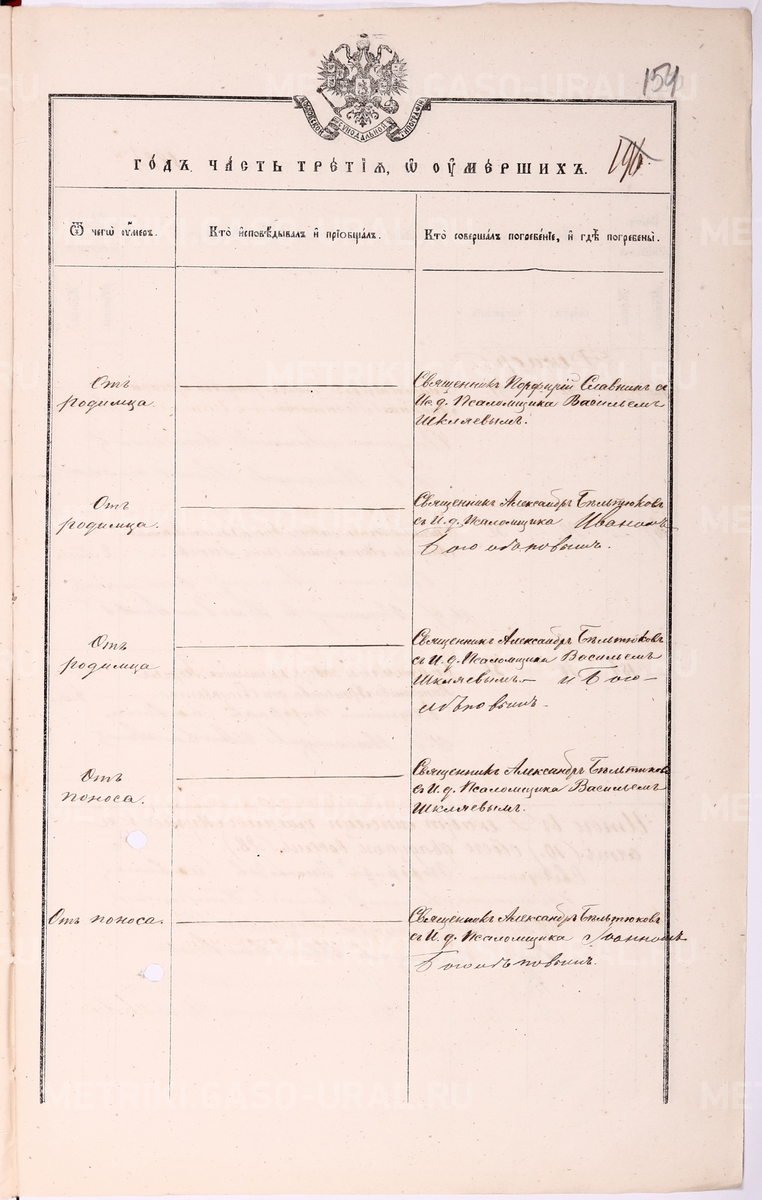 154
МОСКОВСКОЙ СѴНОДАЛЬНОЙ ТИПОГРАФІИ
ГО́ДЪ ЧА́СТЬ ТРЕ́ТІѦ, Ѡ҆ ОУ҆МЕ́РШИХЪ.
Ѿ чегѡ̀ оу҆́меръ.
Кто̀ и҆сповѣ́дывалъ и҆ прїѡбща́лъ.
Кто̀ соверша́лъ погребе́нїе, и҆ гдѣ̀ погребены̀.
Отъ
родимца
Священникъ Порфирій Славнинъ съ
И. д. Псаломщика Васильемъ
Шкляевымъ.
Отъ
родимца.
Священникъ Александръ Бѣльтюковъ
съ И. д. Псаломщика Иваномъ
Отъ
родимца
Священникъ Александръ Бѣльтюковъ
съ И. д. Псаломщика Васильемъ
Шкляевымъ и Бого-
Отъ
поноса.
Священникъ Александръ Бѣльтюковъ
съ И. д. Псаломщика Васильемъ
Шкляевымъ.
Отъ поноса.
Священникъ Александръ Бѣльтюковъ
съ И. д. Псаломщика Іоанномъ
METRIKI.GASO-URAL.RU